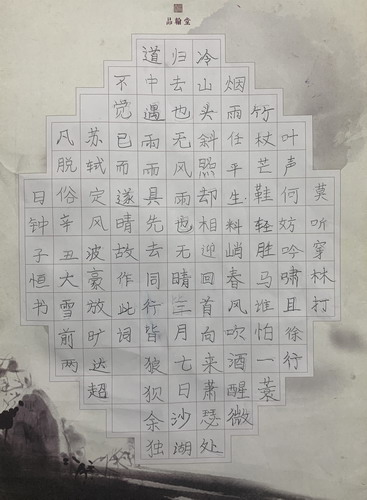 品翰堂
莫听穿林打
叶声何妨吟啸且徐行
竹杖芒鞋轻胜马谁怕一蓑
烟雨任平生料峭春风吹酒醒微
冷山头斜照却相迎回首向来萧瑟处
归去也无风雨也无晴三月七日沙湖
道中遇雨雨具先去同行皆狼狈余独
不觉已而遂晴故作此词
苏轼定风波豪放旷达超
凡脱俗辛丑大雪前两
日钟子恒书